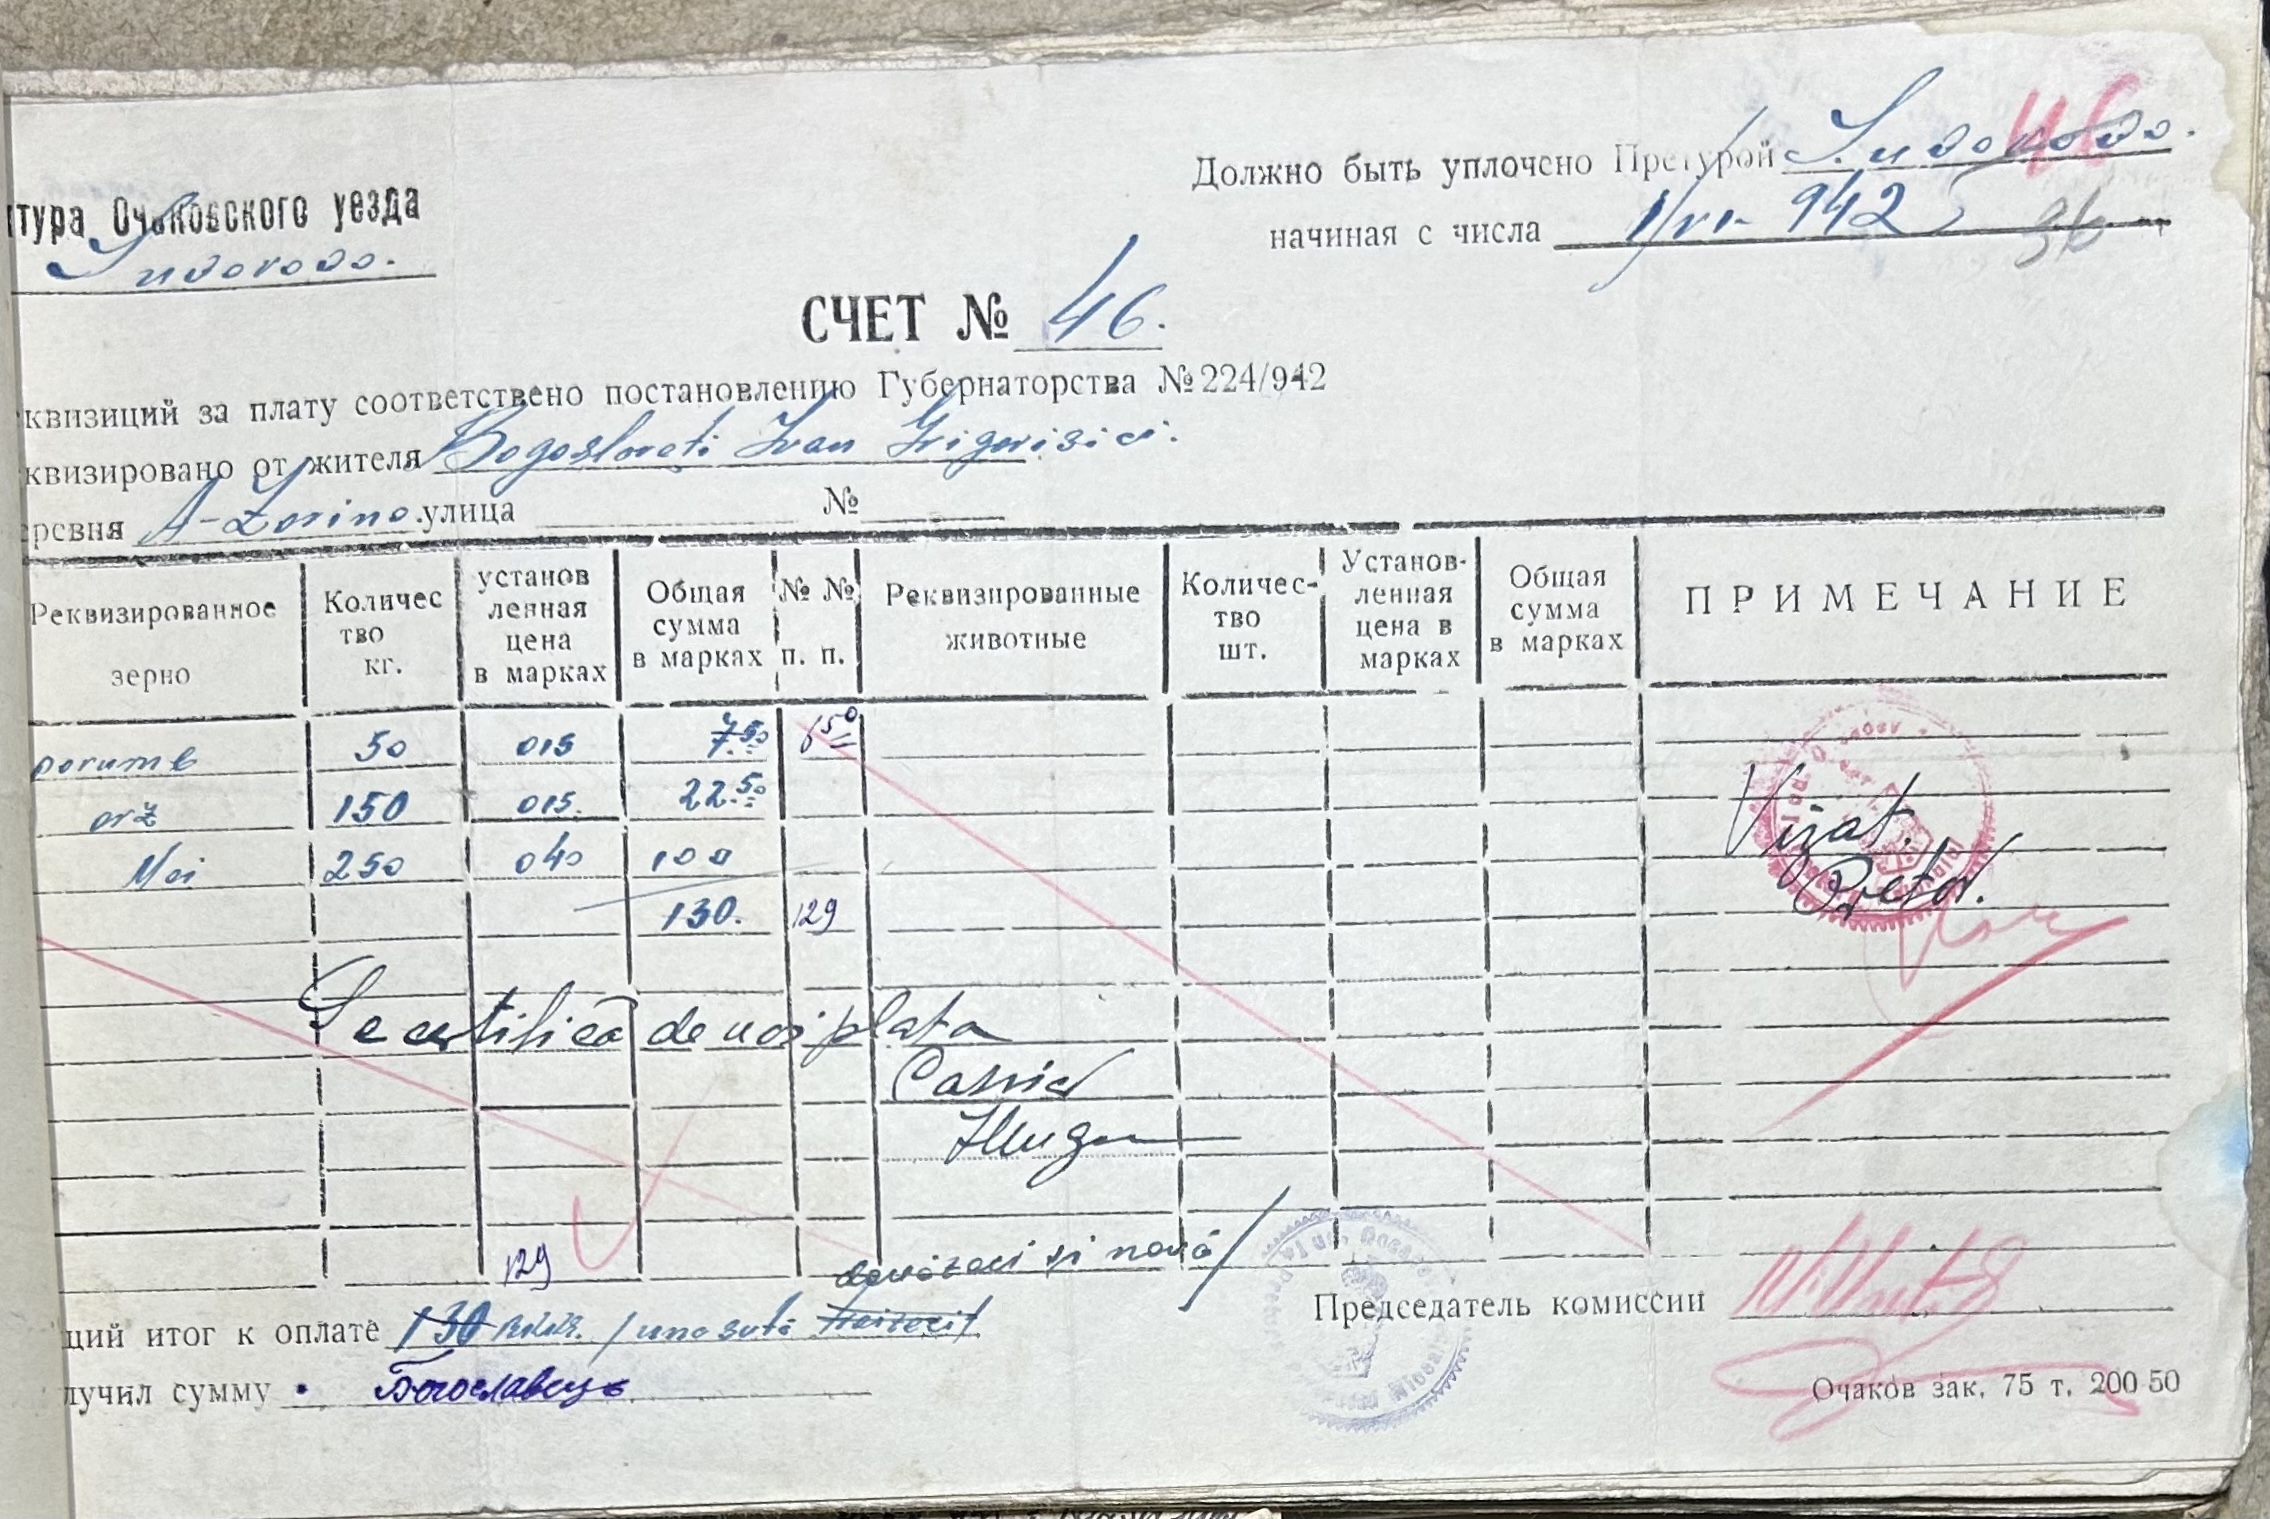 Должно быть уплочено Претурой
начиная с числа 1/VI- 942
46
36
тура Очаковского уезда
СЧЕТ № 46.
квизиций за плату соответствено постановлению Губернаторства № 224/942
квизировано от жителя Bogosloveți Ivan Grigorievici.
ревня A-Zorino. улица №
Реквизированное зерно Количес тво кг. установ ленная цена в марках Общая сумма в марках № № п. п. Реквизированные животные Количес- тво шт. Установ- ленная цена в марках Общая сумма в марках ПРИМЕЧАНИЕ
porumb 50 015 7.50 650
orz 150 015. 22.50
250 040 100
130. 129
Vizat.
Pretor.
Se certifică de noi plata
Casier
129
douăzeci și nouă/
щий итог к оплате 130 /una sută treizeci/
Председатель комиссии
лучил сумму Богославець
Очаков зак. 75 т. 200-50